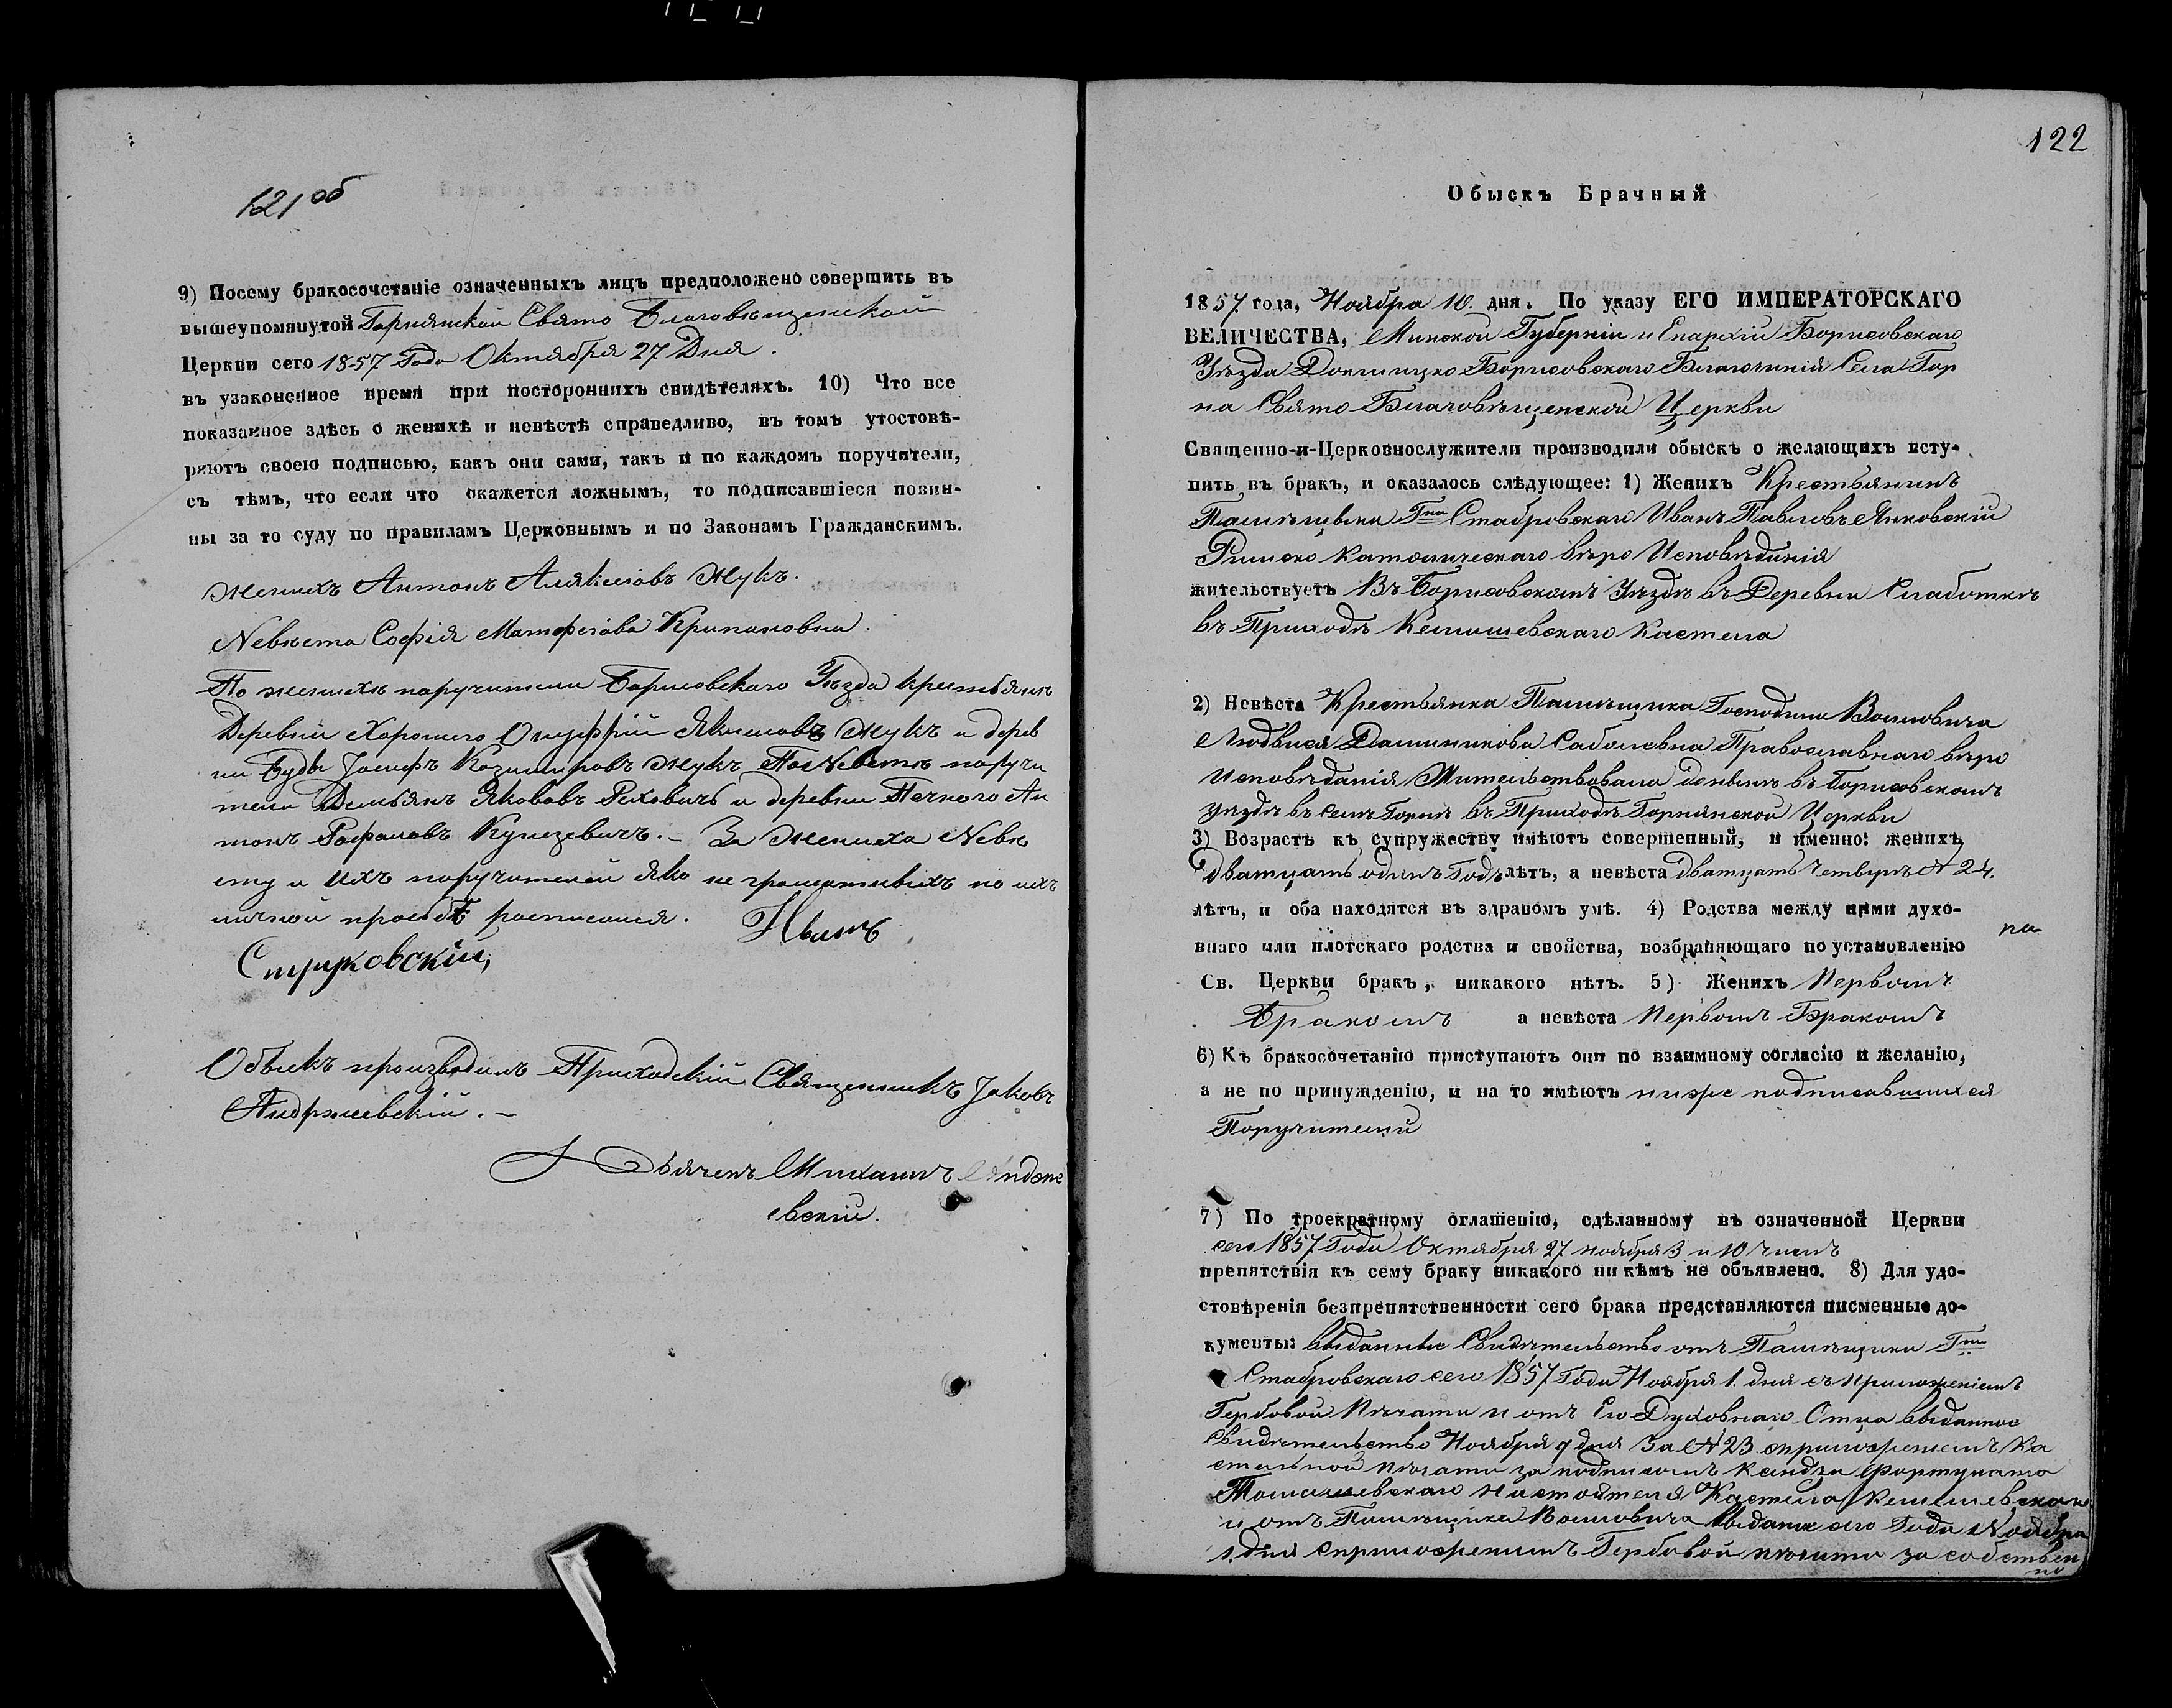 121 об
9) Посему бракосочетаніе означенныхъ лицъ предположено совершить въ
вышеупомянутой Горнянской Свято Благовѣщенской
Церкви сего 1857 Года Октября 27 Дня.
въ узаконенное время при постороннихъ свидѣтеляхъ. 10) Что все
показанное здѣсь о женихѣ и невѣстѣ справедливо, въ томъ утостовѣ-
ряютъ своею подписью, какъ они сами, такъ и по каждомъ поручители,
съ тѣмъ, что если что окажется ложнымъ, то подписавшіеся повин-
ны за то суду по правиламъ Церковнымъ и по Законамъ Гражданскимъ.
Женихъ Антонъ Жукъ.
Невѣста Софія Матфеіова
По женихѣ поручители Борисовскаго Уѣзда крестьянъ
Деревни Хорошего Онуффрій Якимовъ Жукъ и дерев
ни Буды Іосифъ Казимировъ Жукъ По Невѣстѣ поручи
тели Демьянъ Яковъ и деревни Ан
тонъ Рафаловъ За Жениха Невѣ
сту и ихъ поручителей яко не грамотныхъ по ихъ
личной прозбѣ росписался. Иванъ
Струковскій,
Обыскъ производилъ Приходскій Священникъ Іаковъ
Андржеевскій. –
Дьячекъ Михаилъ Андрже
евскій.
122
Обыскъ Брачный
1857 года, Ноября 10. дня. По указу ЕГО ИМПЕРАТОРСКАГО
ВЕЛИЧЕСТВА, Минской Губерніи и Епархіи Борисовскаго
Уѣзда Докшицко Борисовскаго Благочинія Села Гор
на Свято Благовѣщенской Церкви
Священно-и-Церковнослужители производили обыскъ о желающихъ всту-
пить въ бракъ, и оказалось слѣдующее: 1) Женихъ Крестьянинъ
Помѣщика Гна Стабровскаго Иванъ Павловъ Янковскій
Римско Католическаго вѣро Исповѣданія
жительствуетъ Въ Борисовскомъ Уѣздѣ въ Деревни Слаботкѣ
въ Приходѣ Костела
2) Невѣста Крестьянка Помѣщика Господина Воиловича
Людвися Доминикова Саболевна Православнаго вѣро
исповѣданія Жительствовала донынѣ въ Борисовскомъ
уѣздѣ въ селѣ Горнѣ въ Приходѣ Горнянской Церкви
3) Возрастъ къ супружеству имѣютъ совершенный, и именно: женихъ
дватцать одинъ Годъ лѣтъ, а невѣста дватцать № 24.
лѣтъ, и оба находятся въ здравомъ умѣ. 4) Родства между ними духо-
внаго или плотскаго родства и свойства, возбраняющаго по установленію
Св. Церкви бракъ, никакого нѣтъ. 5) Женихъ Первымъ
Бракомъ а невѣста Первымъ Бракомъ
6) Къ бракосочетанію приступаютъ они по взаимному согласію и желанію,
а не по принужденію, и на то имѣютъ ниже подписавшихся
Поручителей
7) По троекратному оглашенію, сдѣланному въ означенной Церкви
сего 1857 Года Октября 27 ноября 3 и 10 чиселъ
препятствія къ сему браку никакого ни кѣмъ не объявлено. 8) Для удо-
стовѣренія безпрепятственности сего брака представляются писменные до-
кументы: выданные Свидѣтельство отъ Помѣщика Гна
Стабровскаго сего 1857 Года Ноября 1. дня съ Приложеніемъ
Гербовой Печати и отъ Его Духовнаго Отца выданное
свидѣтельство Ноября 9 дня За № 23 съ приложеніемъ Ка
стельной печати за подписомъ Ксендза Фортуната
настоятеля Костела
и отъ Помѣщика Воиловича выданное сего Года Ноября
1 дня съ приложеніемъ Гербовой печати за собствен
но